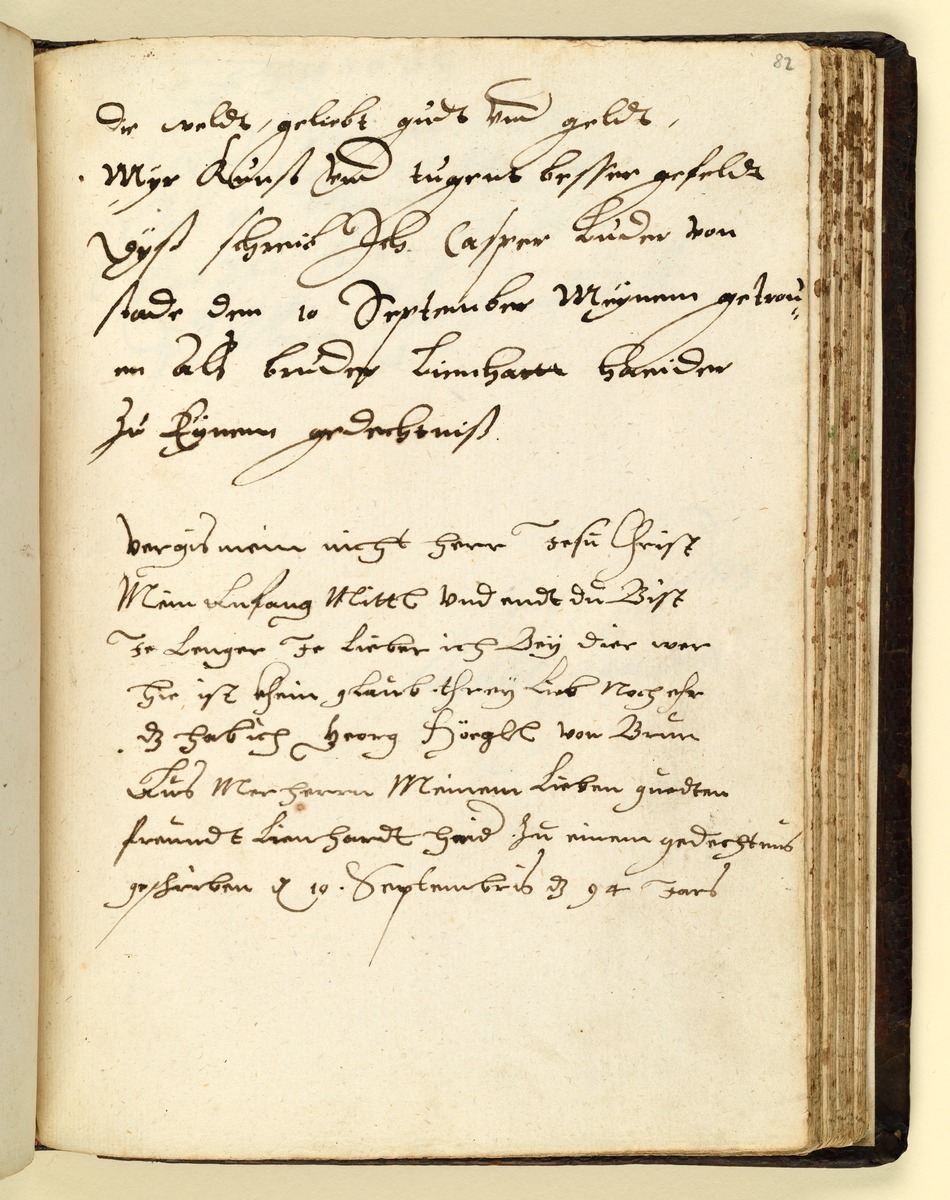 82
Die weldt, geliebt gudt vnd geldt,
Myr Kunst vnd tugent besser gefeldt
Dyß schreib Ich Casper Luder von
stade dem 10 September Meynem getrou=
en als bruder Lienhartt Haeider
Zu Eynem gedechtniß.
Vergis mein nicht herr Jesu Christ
Mein Anfang Mittl Vnd endt du Bist
Je Lenger Je Lieber ich Bey dier wer
hie ist khein glaub threy Lieb Noch ehr
dz hab ich Georg Högll von Brun
Aus Merherrn Meinem Lieben guedten
freundt Lienhardt haid Zu einem gedechtnus
geschirben d 10. Septembris dz 94 Jars